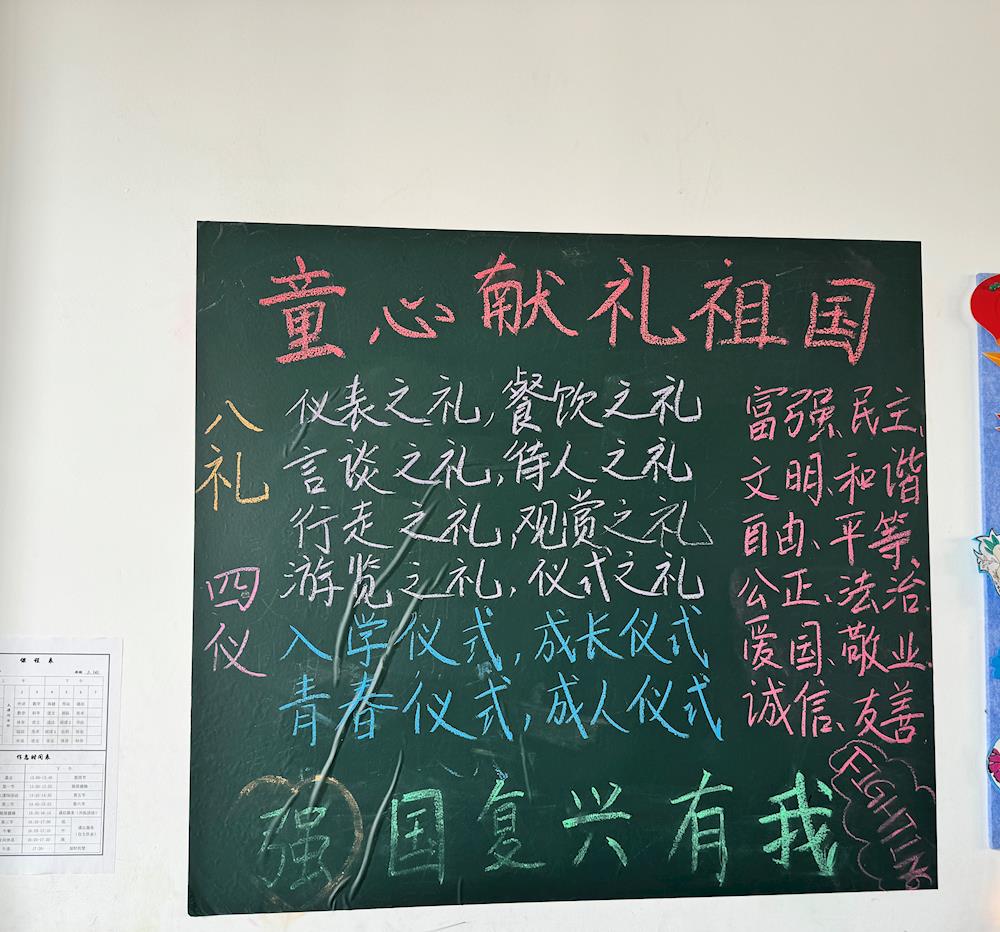 童心献礼祖国
八礼
仪表之礼,餐饮之礼
言谈之礼,待人之礼
行走之礼,观赏之礼
游览之礼,仪式之礼
四仪
入学仪式,成长仪式
青春仪式,成人仪式
富强、民主、
文明、和谐
自由、平等、
公正、法治、
爱国、敬业、
诚信、友善
强国复兴有我
FIGHTING
课程表
作息时间表